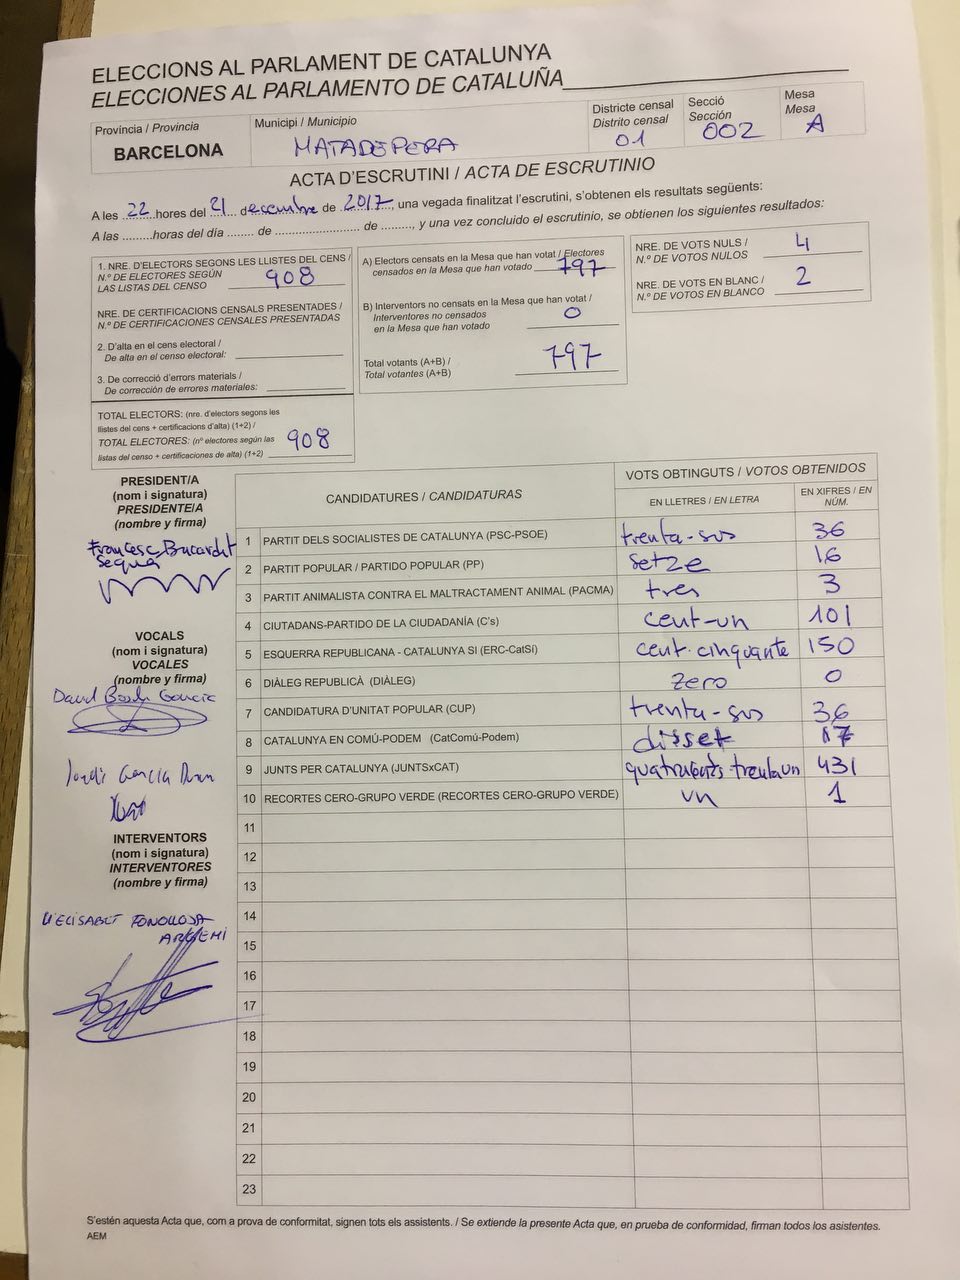 ELECCIONS AL PARLAMENT DE CATALUNYA
ELECCIONES AL PARLAMENTO DE CATALUÑA
Província / Provincia
BARCELONA
Municipi / Municipio
MATADEPERA
Districte censal
Distrito censal
01
Secció
Sección
002
Mesa
Mesa
A
ACTA D'ESCRUTINI / ACTA DE ESCRUTINIO
A les 22 hores del 21 de desembre de 2017, una vegada finalitzat l'escrutini, s'obtenen els resultats següents:
A las .........horas del día ........ de ......................... de ........., y una vez concluido el escrutinio, se obtienen los siguientes resultados:
1. NRE. D'ELECTORS SEGONS LES LLISTES DEL CENS /
N.º DE ELECTORES SEGÚN
LAS LISTAS DEL CENSO 908
NRE. DE CERTIFICACIONS CENSALS PRESENTADES /
N.º DE CERTIFICACIONES CENSALES PRESENTADAS
2. D'alta en el cens electoral /
De alta en el censo electoral:
3. De correcció d'errors materials /
De corrección de errores materiales:
TOTAL ELECTORS: (nre. d'electors segons les
llistes del cens + certificacions d'alta) (1+2) /
TOTAL ELECTORES: (nº electores según las
listas del censo + certificaciones de alta) (1+2) 908
A) Electors censats en la Mesa que han votat / Electores
censados en la Mesa que han votado 797
B) Interventors no censats en la Mesa que han votat /
Interventores no censados
en la Mesa que han votado 0
Total votants (A+B) /
Total votantes (A+B) 797
NRE. DE VOTS NULS /
N.º DE VOTOS NULOS 4
NRE. DE VOTS EN BLANC /
N.º DE VOTOS EN BLANCO 2
PRESIDENT/A
(nom i signatura)
PRESIDENTE/A
(nombre y firma)
Francesc
VOCALS
(nom i signatura)
VOCALES
(nombre y firma)
David Garcia
Jordi Garcia
INTERVENTORS
(nom i signatura)
INTERVENTORES
(nombre y firma)
M'ELISABET FONOLLOSA
ARGEMI
CANDIDATURES / CANDIDATURAS
VOTS OBTINGUTS / VOTOS OBTENIDOS
EN LLETRES / EN LETRA
EN XIFRES / EN
NÚM.
1 PARTIT DELS SOCIALISTES DE CATALUNYA (PSC-PSOE) trenta-sis 36
2 PARTIT POPULAR / PARTIDO POPULAR (PP) setze 16
3 PARTIT ANIMALISTA CONTRA EL MALTRACTAMENT ANIMAL (PACMA) tres 3
4 CIUTADANS-PARTIDO DE LA CIUDADANÍA (C's) cent-un 101
5 ESQUERRA REPUBLICANA - CATALUNYA SÍ (ERC-CatSí) cent-cinquante 150
6 DIÀLEG REPUBLICÀ (DIÀLEG) zero 0
7 CANDIDATURA D'UNITAT POPULAR (CUP) trenta-sis 36
8 CATALUNYA EN COMÚ-PODEM (CatComú-Podem) disset 17
9 JUNTS PER CATALUNYA (JUNTSxCAT) quatrucents trenta un 431
10 RECORTES CERO-GRUPO VERDE (RECORTES CERO-GRUPO VERDE) un 1
11
12
13
14
15
16
17
18
19
20
21
22
23
S'estén aquesta Acta que, com a prova de conformitat, signen tots els assistents. / Se extiende la presente Acta que, en prueba de conformidad, firman todos los asistentes.
AEM